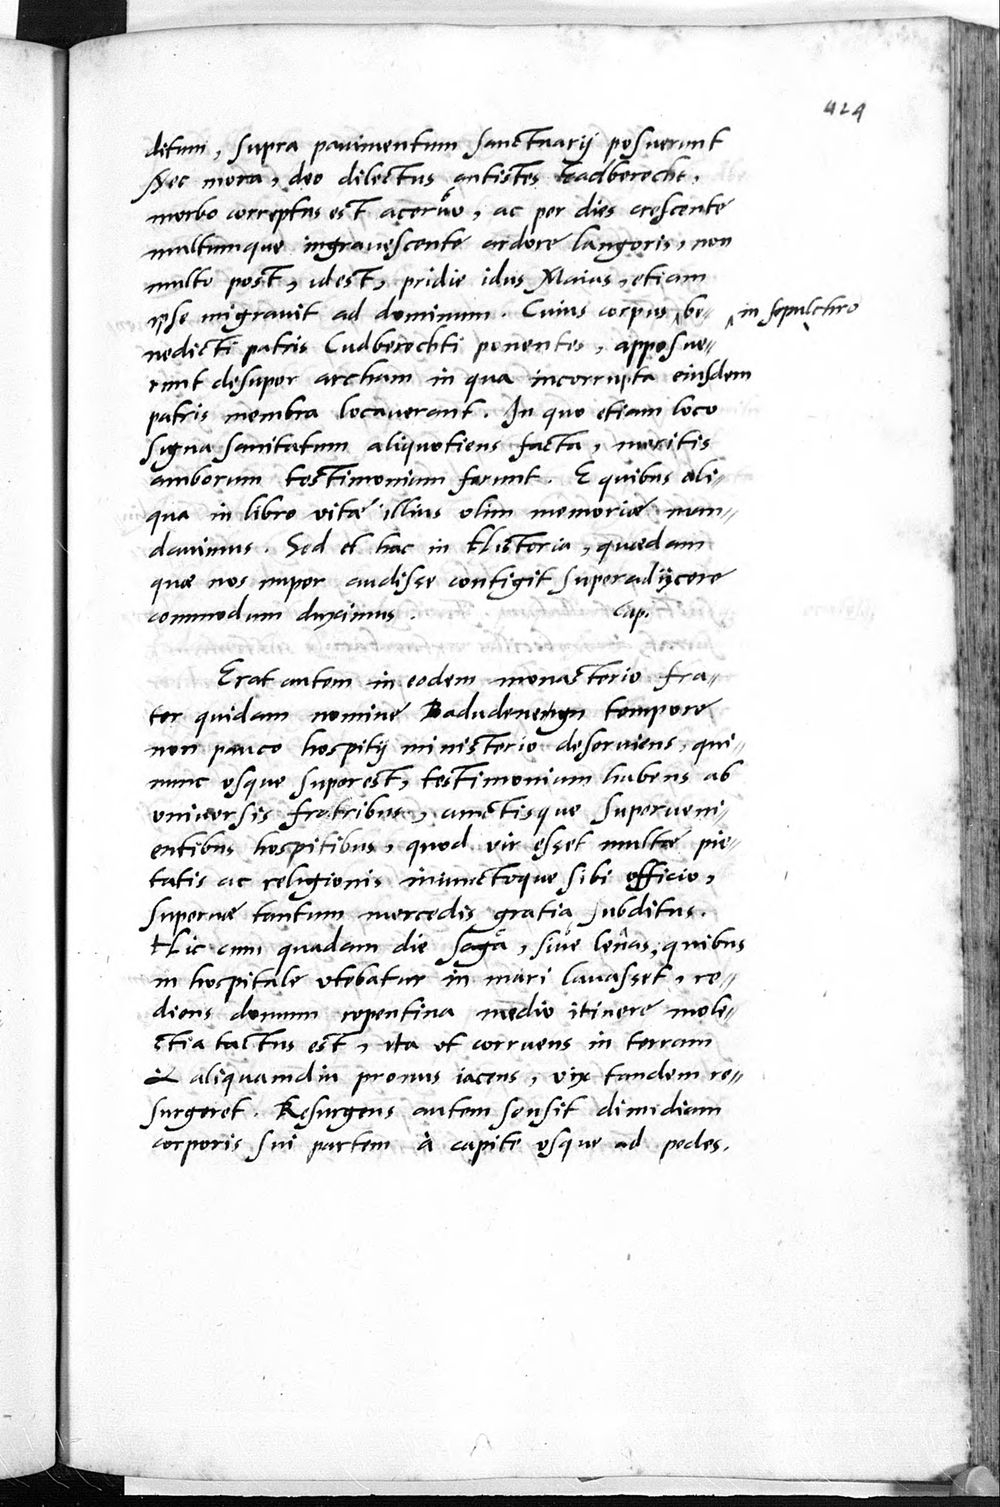 424
ditum, supra pauimentum sanctuarij posuerunt
Nec mora, deo dilectus antistes Eadberecht,
morbo correptus est acerúo, ac per dies crescente
multumque ingrauescente ardore langoris, non
multo post, idest, pridie idus Maias, etiam
ipse migrauit ad dominum. Cuius corpus ^ be- ^ in sepulchro
nedicti patris Cudberechti ponentes, apposue-
runt desuper archam in qua incorrupta eiusdem
patris membra locauerant. In quo etiam loco
signa sanitatum aliquotiens facta, meritis
amborum testimonium ferunt. E quibus ali-
qua in libro vitæ illius olim memoriæ man-
dauimus. Sed et hac in Historia, quædam
quæ nos nuper audisse contigit superadijcere
commodum duximus. Cap.
Erat autem in eodem monasterio fra-
ter quidam nomine Badudenegn tempore
non pauco hospitij ministerio deseruiens, qui-
nunc vsque superest, testimonium habens ab
vniuersis fratribus, cunctisque superueni-
entibus hospitibus, quod vir esset multæ pie-
tatis ac religionis iniunctoque sibi officio,
supernæ tantum mercedis gratia subditus.
Hic cum quadam die sagâ, siue lenas, quibus
in hospitale vtebatur in mari lauasset, re-
diens domum repentina medio itinere mole-
stia tactus est, ita vt corruens in terram
& aliquamdiu pronus iacens, vix tandem re-
surgeret. Resurgens autem sensit dimidiam
corporis sui partem à capite vsque ad pedes.